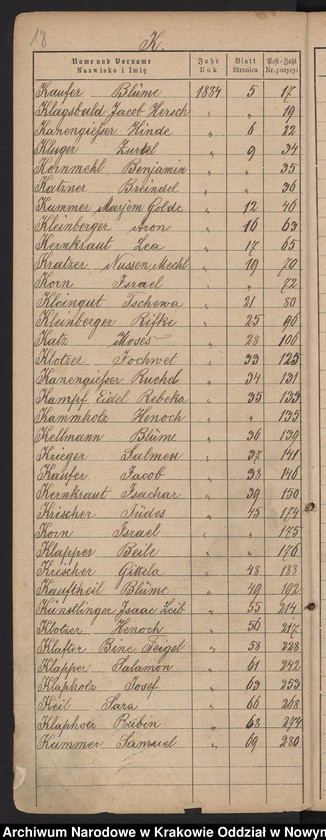 18
K.
Name und Vorname Jahr Blatt Post-Zahl
Nazwisko i Imię Rok Stronica Nr. pozycyi
Kaufer Blüme 1884 5 17
Klagsbald Jacob Hersch " " 19
Kanengiefser Hinde " 6 22
Kluger " 9 34
Kornmehl Benjamin " " 35
Katzner Breindel " " 36
Kummer Marjem Golde " 12 46
Kleinberger Aron " 16 63
Kernkraut Lea " 17 65
Kratzer Nussen Mechl " 19 70
Korn Israel " " 72
Kleingut Tschewa " 21 80
Kleinberger Rifke " 25 96
Katz Moses " 28 106
Klotzer Jochwet " 33 125
Kanengiefser Ruchel " 34 131
Kampf Eidel Rebeka " 35 133
Kammholz Henoch " " 135
Keltmann Blüme " 36 139
Krieger Salmen " 37 141
Kaufer Jacob " 38 146
Kernkraut Isachar " 39 150
Krischer Jüdes " 45 174
Korn Israel " " 175
Klapper Beile " " 176
Krischer Gittela " 48 188
Kauftheil Blüme " 49 192
Künstlinger Isaac Leib " 55 214
Klotzer Henoch " 56 217
Klafter Bine Feigel " 58 228
Klapper Salamon " 61 242
Klapholz Josef " 63 253
Keil Sara " 66 268
Klapholz Rubin " 68 274
Kummer Samuel " 69 280
Archiwum Narodowe w Krakowie Oddział w Nowym